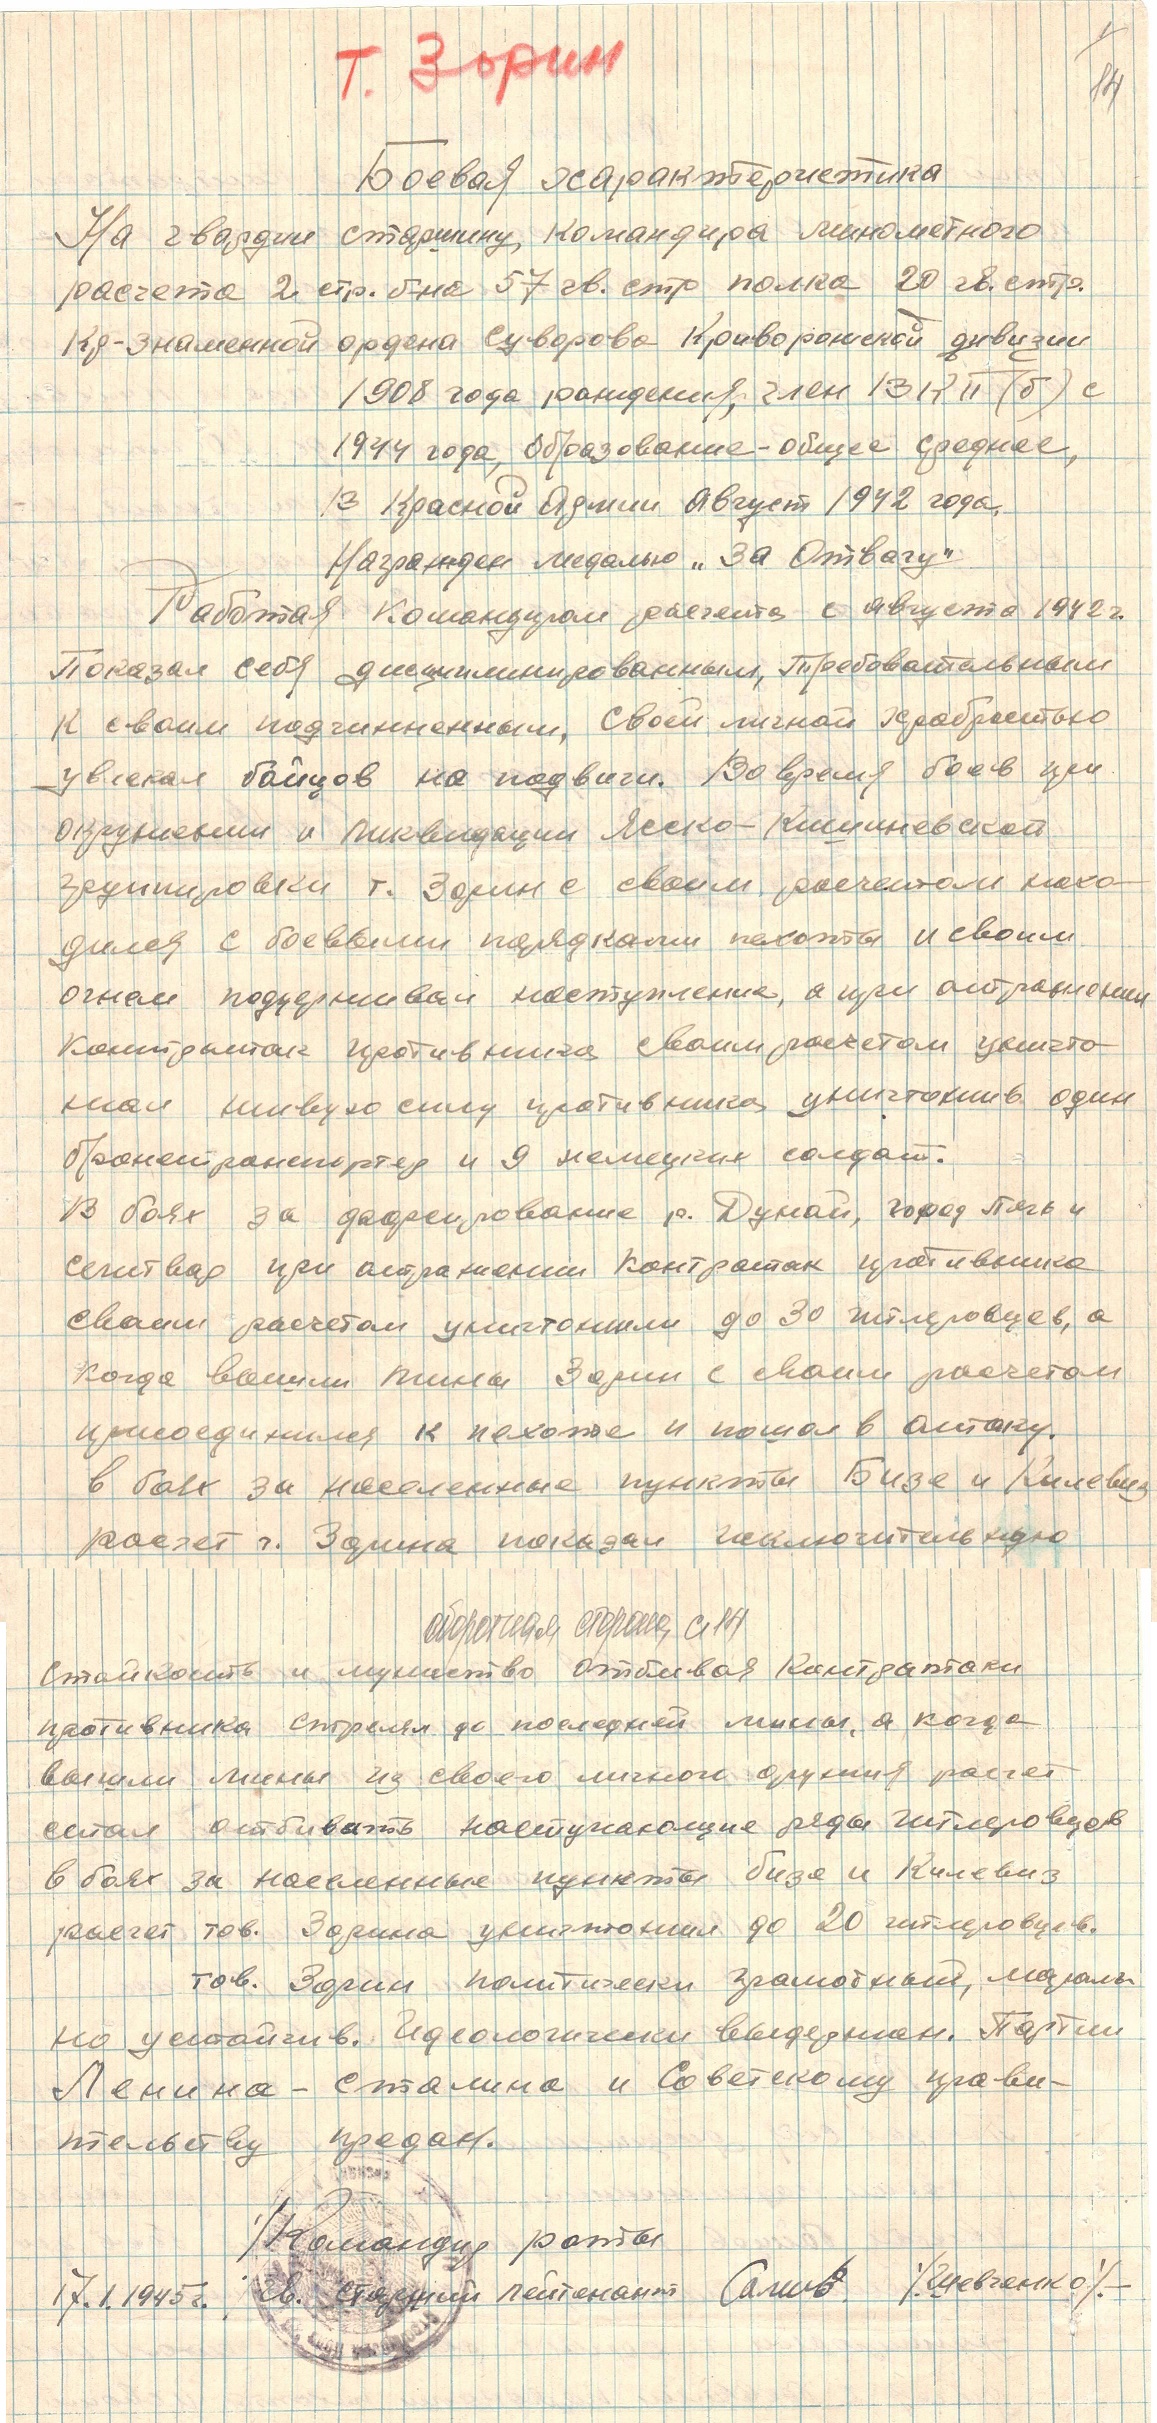 т. Зорин
14
Боевая характеристика
На гвардии старшину, командира минометного
расчета 2 стр. б-на 57 гв. стр полка 20 гв. стр.
Кр-знаменной ордена Суворова Криворожской дивизии
1908 года рождения, член ВКП(б) с
1944 года, Образование - общее среднее,
В Красной Армии Август 1942 года.
Награжден медалью „За Отвагу"
Работая Командиром расчета с августа 1942 г.
Показал себя дисциплинированным, требовательным
К своим подчинненным, Своей личной храбростью
увлекал бойцов на подвиги. Во время боев при
окружении и ликвидации Ясско-Кишиневской
группировки т. Зорин с своим расчетом нахо-
дился с боевыми порядками пехоты и своим
огнем поддерживал наступление, а при отражении
контратак противника своим расчетом уничто-
жал живую силу противника уничтожив один
бронетранспортер и 9 немецких солдат.
В боях за форсирование р. Дунай, город Печь и
при отражении контратак противника
своим расчетом уничтожили до 30 гитлеровцев, а
когда вышли мины Зорин с своим расчетом
присоединился к пехоте и пошол в атаку.
в боях за населенные пункты Бизе и Килевиз
расчет т. Зорина показал исключительную
оборотная сторона с 14
стойкость и мужество отбивая контратаки
противника стрелял до последней мины, а когда
вышли мины из своего личного оружия расчет
стал отбивать наступающие ряды гитлеровцев
в боях за населенные пункты бизе и Килевиз
расчет тов. Зорина уничтожил до 20 гитлеровцев.
тов. Зорин политически грамотный, мораль-
но устойчив. Идеологически выдержан. Партии
Ленина - Сталина и Советскому прави-
тельству предан.
/Командир роты
17.1.1945 г. гв. старший лейтенант /Шевченко/.-